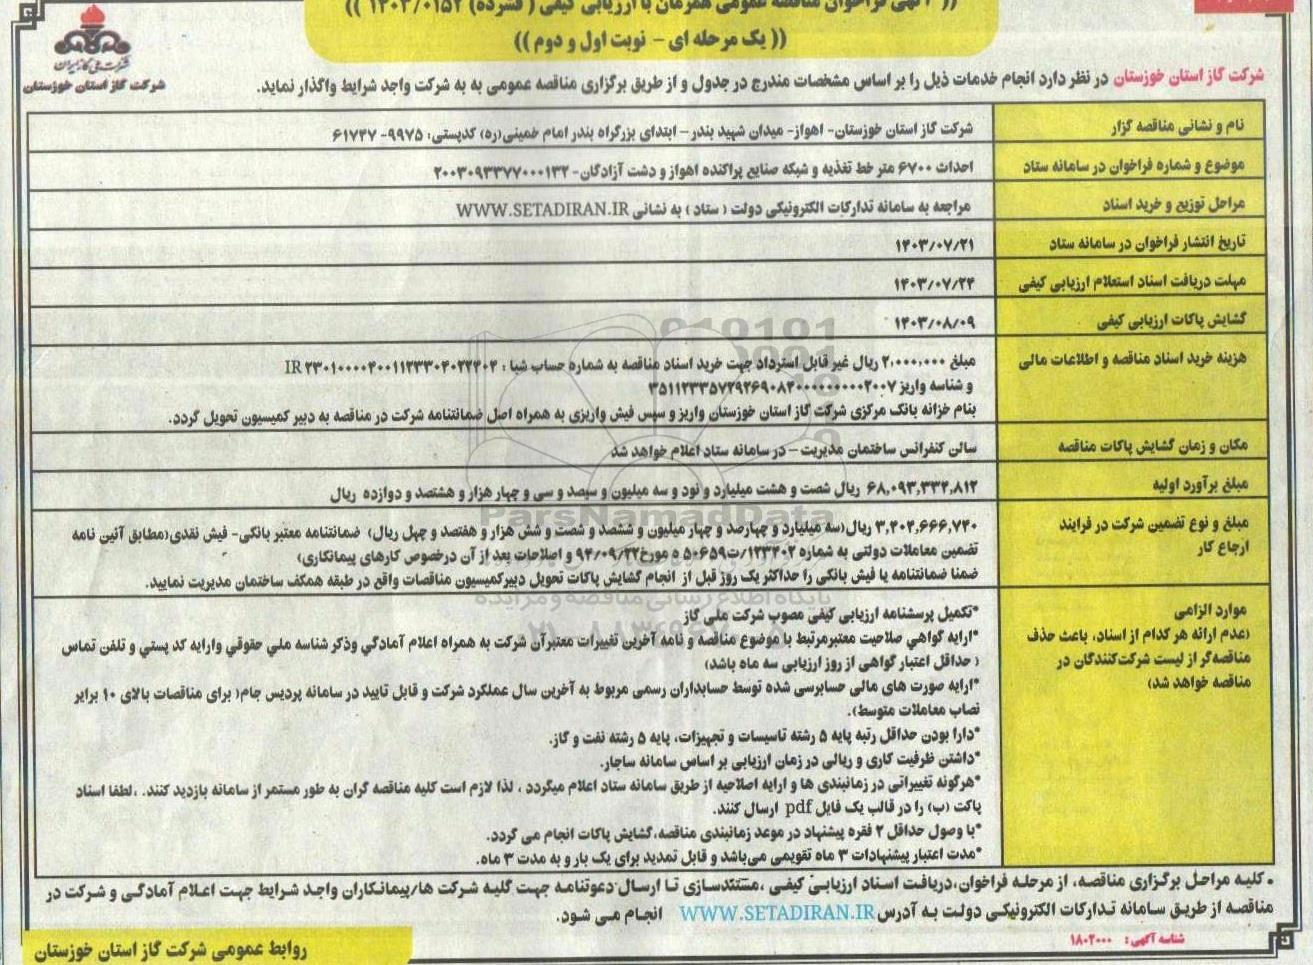 (( آگهی فراخوان مناقصه عمومی همزمان با ارزیابی کیفی ( فشرده) ۱۴۰۳/۰۱۵۲ ))
(( یک مرحله ای - نوبت اول و دوم ))
شرکت ملی گاز ایران
شرکت گاز استان خوزستان
شرکت گاز استان خوزستان در نظر دارد انجام خدمات ذیل را بر اساس مشخصات مندرج در جدول و از طریق برگزاری مناقصه عمومی به به شرکت واجد شرایط واگذار نماید.
نام و نشانی مناقصه گزار
شرکت گاز استان خوزستان- اهواز- میدان شهید بندر- ابتدای بزرگراه بندر امام خمینی(ره) کدپستی: ۹۹۷۵- ۶۱۷۴۷
موضوع و شماره فراخوان در سامانه ستاد
احداث ۶۷۰۰ متر خط تغذیه و شبکه صنایع پراکنده اهواز و دشت آزادگان- ۲۰۰۳۰۹۳۳۷۷۰۰۰۱۳۲
مراحل توزیع و خرید اسناد
مراجعه به سامانه تدارکات الکترونیکی دولت ( ستاد ) به نشانی WWW.SETADIRAN.IR
تاریخ انتشار فراخوان در سامانه ستاد
۱۴۰۳/۰۷/۲۱
مهلت دریافت اسناد استعلام ارزیابی کیفی
۱۴۰۳/۰۷/۲۴
گشایش پاکات ارزیابی کیفی
۱۴۰۳/۰۸/۰۹
هزینه خرید اسناد مناقصه و اطلاعات مالی
مبلغ ۲,۰۰۰,۰۰۰ ریال غیر قابل استرداد جهت خرید اسناد مناقصه به شماره حساب شبا : IR ۲۳۰۱۰۰۰۰۴۰۰۱۱۲۳۳۰۴۰۲۲۴۰۴
و شناسه واریز ۳۵۱۱۲۳۳۵۷۲۹۲۶۹۰۸۴۰۰۰۰۰۰۰۰۰۲۰۰۷
بنام خزانه بانک مرکزی شرکت گاز استان خوزستان واریز و سپس فیش واریزی به همراه اصل ضمانتنامه شرکت در مناقصه به دبیر کمیسیون تحویل گردد.
مکان و زمان گشایش پاکات مناقصه
سالن کنفرانس ساختمان مدیریت – در سامانه ستاد اعلام خواهد شد
مبلغ برآورد اولیه
۶۸,۰۹۳,۳۳۴,۸۱۲ ریال شصت و هشت میلیارد و نود و سه میلیون و سیصد و سی و چهار هزار و هشتصد و دوازده ریال
مبلغ و نوع تضمین شرکت در فرایند
ارجاع کار
۳,۴۰۴,۶۶۶,۷۴۰ ریال(سه میلیارد و چهارصد و چهار میلیون و ششصد و شصت و شش هزار و هفتصد و چهل ریال) ضمانتنامه معتبر بانکی- فیش نقدی(مطابق آئین نامه
تضمین معاملات دولتی به شماره ۱۲۳۴۰۲/ت۵۰۶۵۹ ه مورخ۹۴/۰۹/۲۲ و اصلاحات بعد از آن درخصوص کارهای پیمانکاری)
ضمنا ضمانتنامه یا فیش بانکی را حداکثر یک روز قبل از انجام گشایش پاکات تحویل دبیرکمیسیون مناقصات واقع در طبقه همکف ساختمان مدیریت نمایید.
موارد الزامی
(عدم ارائه هر کدام از اسناد، باعث حذف
مناقصه‌گر از لیست شرکت‌کنندگان در
مناقصه خواهد شد)
*تکمیل پرسشنامه ارزیابی کیفی مصوب شرکت ملی گاز
*ارایه گواهي صلاحیت معتبرمرتبط با موضوع مناقصه و نامه آخرین تغییرات معتبرآن شرکت به همراه اعلام آمادگي وذکر شناسه ملي حقوقي وارایه کد پستي و تلفن تماس
( حداقل اعتبار گواهی از روز ارزیابی سه ماه باشد)
*ارایه صورت های مالی حسابرسی شده توسط حسابداران رسمی مربوط به آخرین سال عملکرد شرکت و قابل تایید در سامانه پردیس جام( برای مناقصات بالای ۱۰ برابر
نصاب معاملات متوسط).
*دارا بودن حداقل رتبه پایه ۵ رشته تاسیسات و تجهیزات، پایه ۵ رشته نفت و گاز.
*داشتن ظرفیت کاری و ریالی در زمان ارزیابی بر اساس سامانه ساجار.
*هرگونه تغییراتی در زمانبندی ها و ارایه اصلاحیه از طریق سامانه ستاد اعلام میگردد ، لذا لازم است کلیه مناقصه گران به طور مستمر از سامانه بازدید کنند. ،لطفا اسناد
پاکت (ب) را در قالب یک فایل pdf ارسال کنند.
*با وصول حداقل ۲ فقره پیشنهاد در موعد زمانبندی مناقصه،گشایش پاکات انجام می گردد.
*مدت اعتبار پیشنهادات ۳ ماه تقویمی می‌باشد و قابل تمدید برای یک بار و به مدت ۳ ماه.
• کلیه مراحل برگزاری مناقصه، از مرحله فراخوان،دریافت اسناد ارزیابی کیفی ،مستندسازی تا ارسال دعوتنامه جهت کلیه شرکت ها/پیمانکاران واجد شرایط جهت اعلام آمادگی و شرکت در
مناقصه از طریق سامانه تدارکات الکترونیکی دولت به آدرس WWW.SETADIRAN.IR انجام می شود.
شناسه آگهی: ۱۸۰۲۰۰۰
روابط عمومی شرکت گاز استان خوزستان
ParsNamadData
پایگاه اطلاع رسانی مناقصه و مزایده